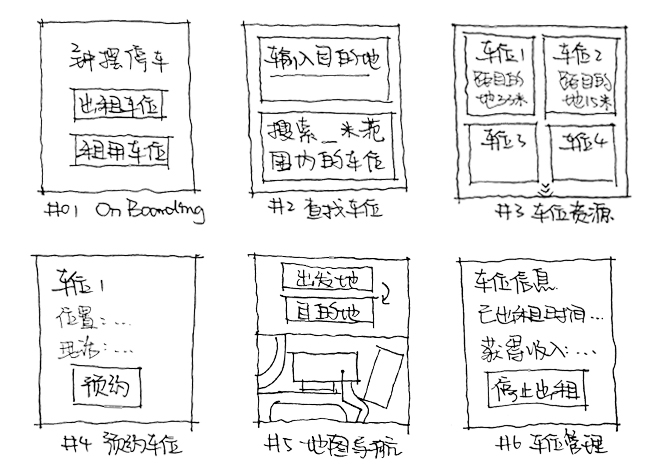 钟摆停车
出租车位
租用车位
#01 OnBoarding
输入目的地
搜索_米范
围内的车位
#2 查找车位
车位1
距目的
地23米
车位2
距目的
地15米
车位3
车位4
#3 车位资源
车位1
位置:...
现况:...
预约
#4 预约车位
出发地
目的地
#5 地图导航
车位信息
已出租时间...
获得收入:...
停止出租
#6 车位管理